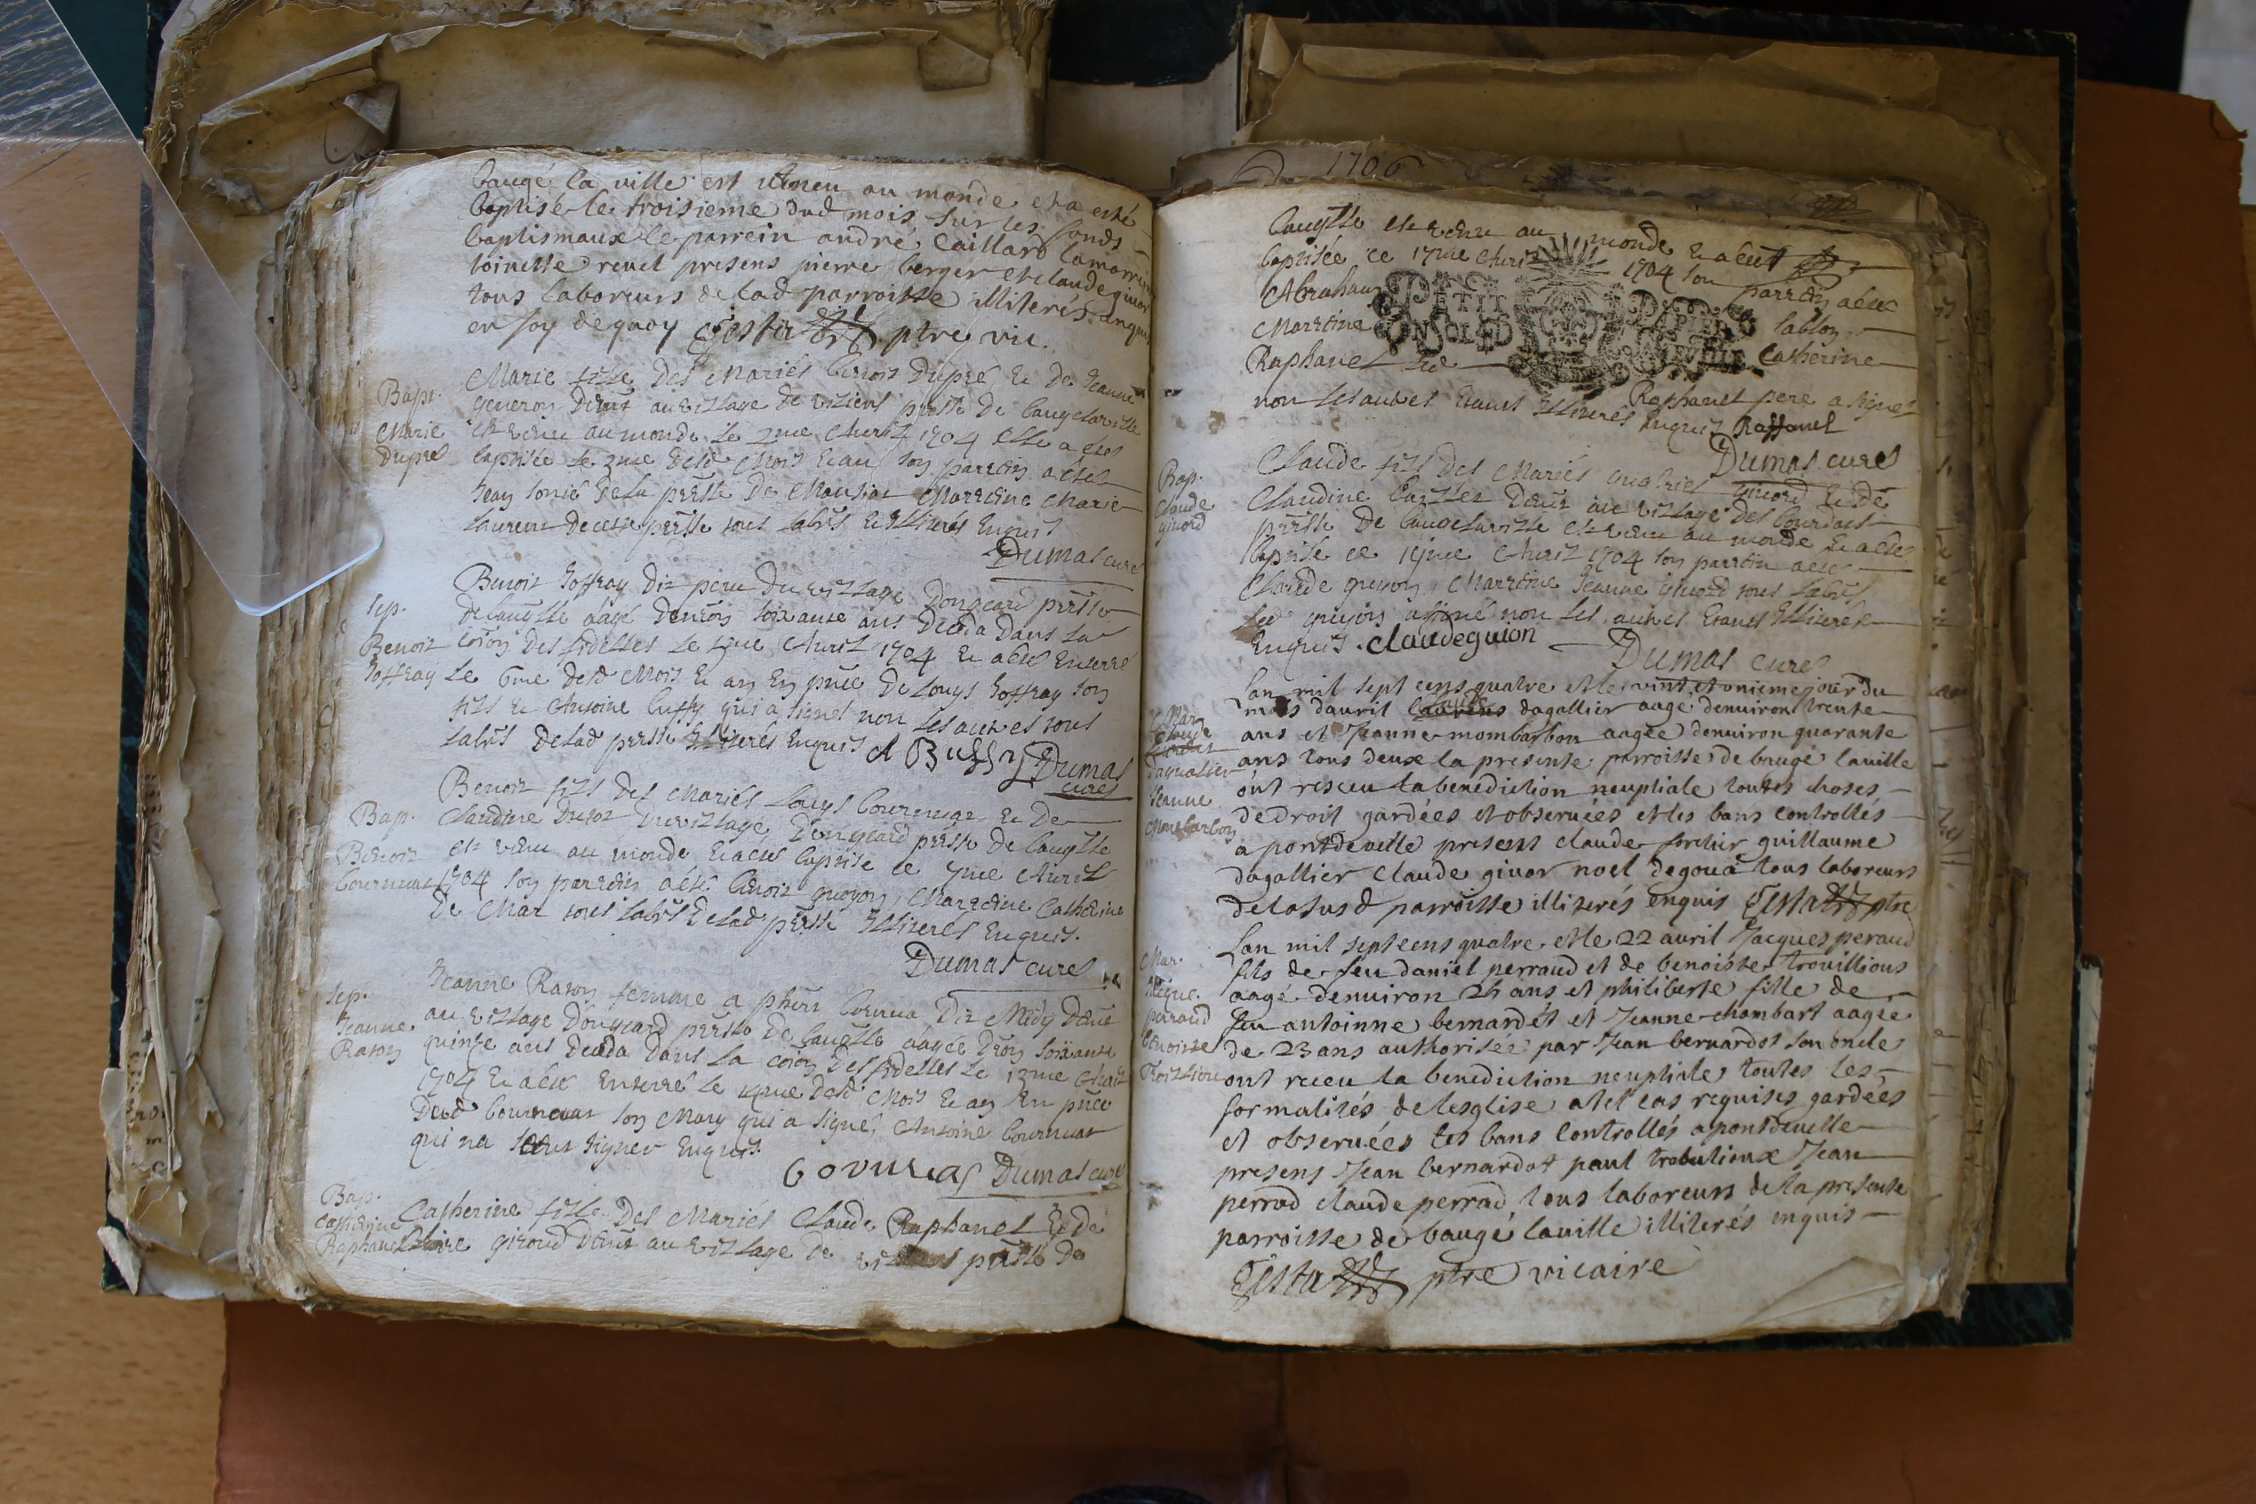 baugé la ville est venu au monde et a esté
baptisé le troisieme dud mois sur les fonds
baptismaux le parrein andré Caillard la marrine
toinette revel presens pierre berger et claude givor
tous laboreurs de lad parroisse illiterés enquis
en foy de quoy Testa ptre vic.
Bapt.
Marie
Dupré
Marie fille Des Mariés benoit Dupré & De Jeanne
generon Demt au village de viziens prsse De baugé la ville
est venue au monde le 2me Avril 1704 elle a esté
baptisée le 3me desd Mois & an son parrein a esté
Jean sonié De la prsse De Mansiat Marreine Marie
laurent de cette prsse tous labrs & Illiterés Enquis
Dumas curé
Sep.
Benoit
Joffray
Benoit Joffray Dit peru Du village Dongeard prsse
de bauglle aagé Denvron soixante ans Deceda Dans la
coion Des fidelles Le 5me Avril 1704 & a esté Enterré
Le 6me desd Mois & an En pnce De Louys Joffray son
fils & Antoine buffy qui a signé non les autres tous
labrs Delad prsse Illiterés Enquis A Buffy
Dumas
curé
Bap.
Benoit
bournuat
Benoit fils Des Mariés Louys bournuat & De
Claudine Dutot Du village Dongeard prsse De baugLle
est venu au monde & a esté baptisé ce 7me Avril
1704 son parrein a esté benoit guyon Marreine Catherine
De Mar tous labrs Delad prsse Illiterés Enquis.
Dumas curé
Sep.
Jeanne
Raton
Jeanne Raton femme a phert bournua Dit Medy Demt
au village Dongeard prsse De baugLle aagée Dvron soixante
quinse ans Deceda Dans La coion Des fidelles Le 13me Avril
1704 & a esté Enterré le 14me Desd Mois & an En pnce
Dud bournuat son Mary qui a signé, Antoine bournuat
qui na sceut signer Enquis.
bovrnuas Dumas curé
Bap.
Catherine
Raphanel
Catherine fille Des Mariés Claude Raphanel & de
Claire giroud Demt au village De viziens prsse De
1706
baugLle est venue au monde & a esté
baptisée ce 17me Avril 1704 son parrein a esté
Abraham sablon
Marreine Catherine
Raphanel led Raphanel pere a signé
non les autres Etants Illiterés Enquis Raffanel
Dumas curé
PETIT PAPIER
Bap.
Claude
givord
Claude fils Des Mariés onofrie givord & De
Claudine Caillet Demt au village Des bourdons
prsse De baugé la ville est venu au monde & a esté
baptisé ce 19me Avril 1704 son parrein a esté
Claude guyon Marreine Jeanne givord tous labrs
led guyon a signé non les autres Etants Illiterés
Enquis. claude guion
Dumas curé
Mar.
Claude
Dagualier
Jeanne
Monbarbon
Lan mil sept cens quatre et le vint et onieme jour du
mois davril claude dagallier aagé denuiron trente
ans et Jeanne mombarbon aagée denuiron quarante
ans tous deux la presente parroisse de baugé la ville
ont resceu la benediction neuptiale toutes choses
de Droit gardées et obseruées et les bans controllés
a pontdeville presens claude fortier guillaume
dagallier claude givor noel degoua tous laboreurs
de la susd parroisse illiterés enquis Testa ptre
Mar.
Jacque
perraud
benoiste
Troullion
Lan mil sept cens quatre et le 22 auril Jacques peraud
fils de feu daniel perraud et de benoiste trouillious
aagé denuiron 25 ans et philiberte fille de
feu antoinne bernardét et Jeanne chombart aagée
de 23 ans authorisée par Jean bernardot son oncle
ont receu la benediction neuptiale toutes les
formalités de lesglise a tel cas requises gardées
et obseruées les bans controllés a pontdeuelle
presens Jean bernardot paul trobulioux Jean
perrad claude perrad tous laboreurs de la presente
parroisse de baugé la ville illiterés enquis
Testa ptre vicaire